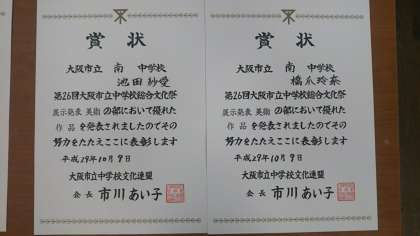 賞状
大阪市立 南 中学校
池田紗愛
第26回大阪市立中学校総合文化祭
展示発表 美術 の部において優れた
作品 を発表されましたのでその
努力をたたえここに表彰します
平成29年10月9日
大阪市立中学校文化連盟
会長 市川あい子
賞状
大阪市立 南 中学校
橋爪玲奈
第26回大阪市立中学校総合文化祭
展示発表 美術 の部において優れた
作品 を発表されましたのでその
努力をたたえここに表彰します
平成29年10月9日
大阪市立中学校文化連盟
会長 市川あい子